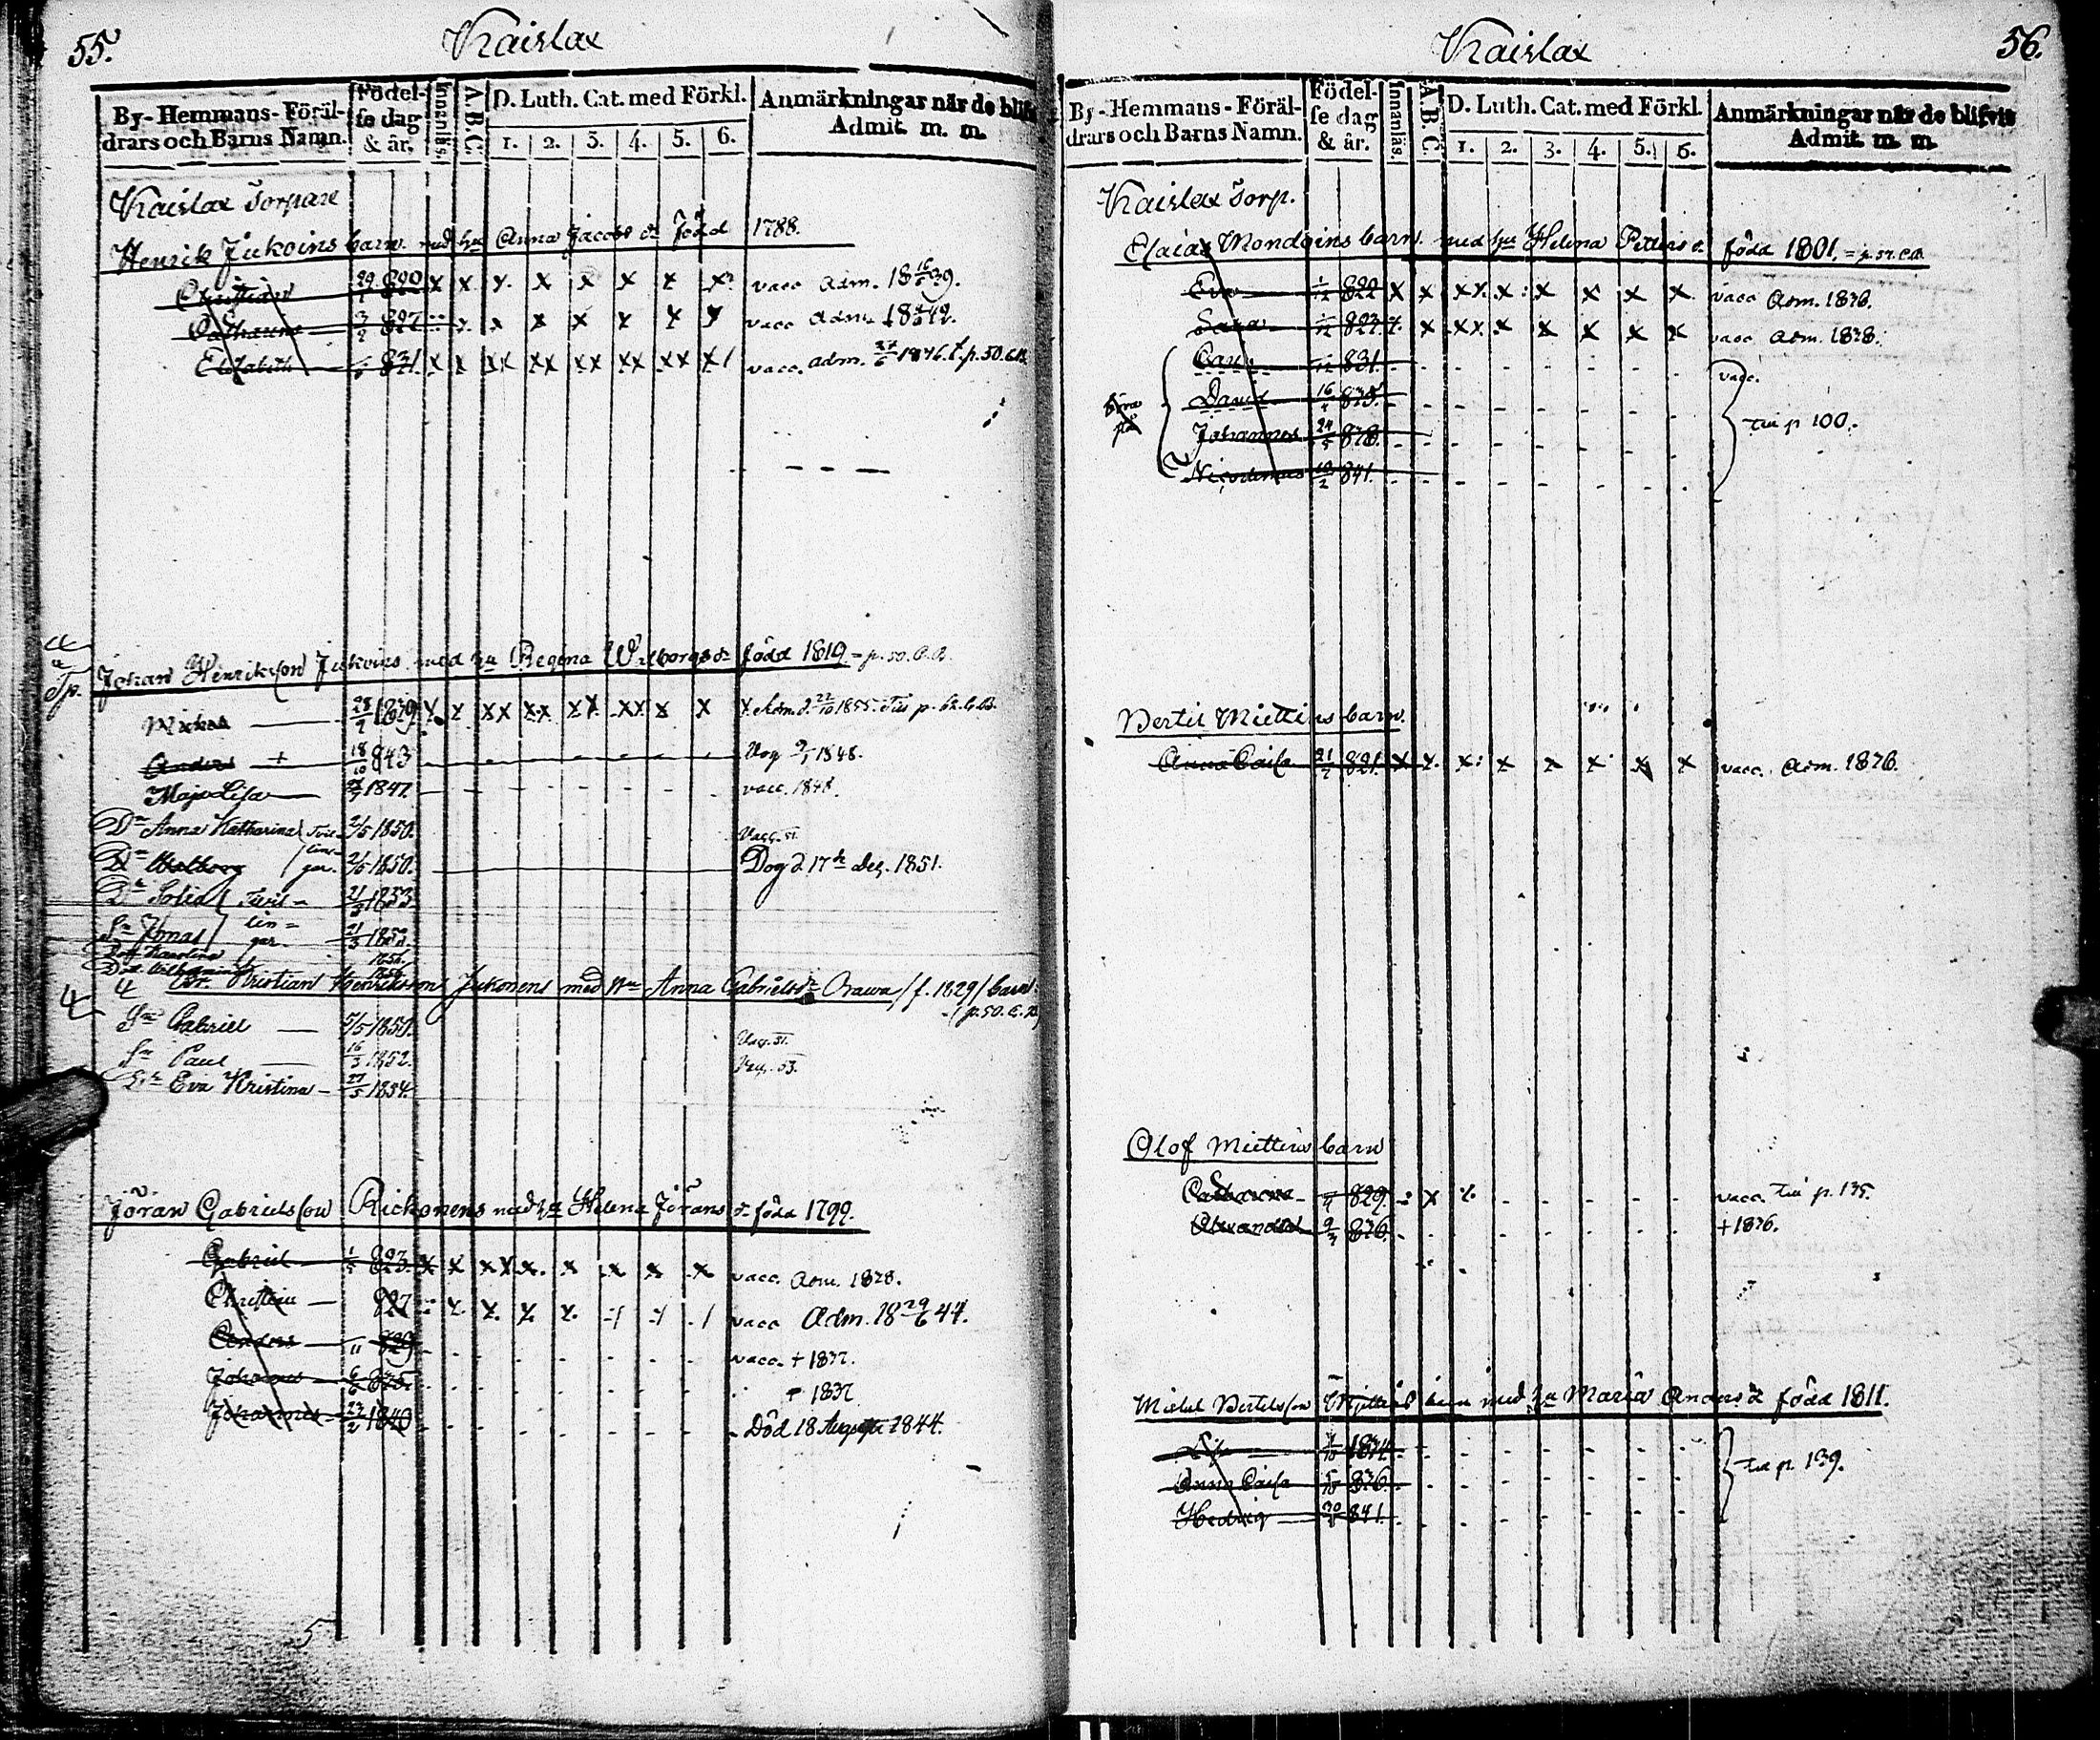 55.
Kaislax
By-Hemmans-Föräl-
drars och Barns Namn.
Födel-
se dag
& år.
Innanläs.
A.B.C.
D. Luth. Cat. med Förkl.
1. 2. 3. 4. 5. 6.
Anmärkningar när de blifvit
Admit. m. m.
Kaislax Torpare
Henrik Jukoins barn med hu Anna Jacobs dr född 1788.
Christian 820 x x x x x x x x vacc adm. 18 39.
Catharina 827 x x x x x x vacc adm. 1842.
Elisabeth 831 x x xx xx xx xx xx x/ vacc. adm. 1846. p. 50. C.B.
Johan Henriksson Jukoins med hu Regina Walborgs dr född 1819 = p. 50. C.B.
Michel 28 1839 x x xx xx xx xx x x Adm. d. 22/10 1855.
Anders + 18/10 843 Dog 1848.
Maja Lisa 1847. vacc. 1848.
Dr Anna Katharina 2/5 1850. Vacc. 51.
Dr Walborg 2/5 1850. Dog d 17de dec. 1851.
Dr Sofia 21/3 1853
Sn Jonas 21/3 1853
Dott. Karolina 1856.
Dott. Wilhelmina 1856.
Kristian Henriksson Jukonens med Hu Anna Gabrielsdr Orawa /f. 1829/ barn:
(p. 50. C.B.)
Sn Gabriel 5/5 1850. Vacc. 51.
Sn Paul 16/3 1852. Vacc. 53.
Dr Eva Kristina 27/5 1854.
Jöran Gabrielsson Rickonens med hu Helena Jörans dr född 1799.
Gabriel 823 x x xx x x x x x vacc. Adm. 1838.
Christin 827 x x x x vacc Adm. 18 29/6 44.
Anders 829 vacc. + 1837.
Johannes 835 + 1837
Johannes 1840 Död 18 Augusti 1844.
56.
Kaislax
By-Hemmans-Föräl-
drars och Barns Namn.
Födel-
se dag
& år.
Innanläs.
A.B.C.
D. Luth. Cat. med Förkl.
1. 2. 3. 4. 5. 6.
Anmärkningar när de blifvit
Admit. m. m.
Kaislax Torp.
Elaias Mondoins barn med hu Helena Petters dr född 1801.
Eva 822 x x xx x x x x x vacc Adm. 1836.
Sara 823 x x xx x x x x x vacc Adm. 1838.
831 vacc.
David 16 835
Johannes 24/5 838 till p 100.
Nicodemus 12/2 841.
Bertil Miettins barn.
Anna Caisa 21/2 821 x x x x x x x x vacc. Adm. 1836.
Olof Miettins barn
Catharina 829 x x vacc. till p. 135.
Alexander 9/3 836 + 1836.
Michel Bertelsson Miettins barn med hu Maria Anders dr född 1811.
Lisa 1834
Anna Caisa 836 till p. 139.
Hedvig 30 841